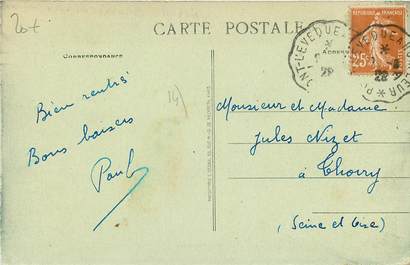 20+
CARTE POSTALE
CORRESPONDANCE
ADRESSE
RÉPUBLIQUE FRANÇAISE
25c
NT-L'EVEQUE
Bien rentré
Bons baisers
Paul
14)
Monsieur et Madame
Jules Nizet
à Thoiry
(Seine et Oise)